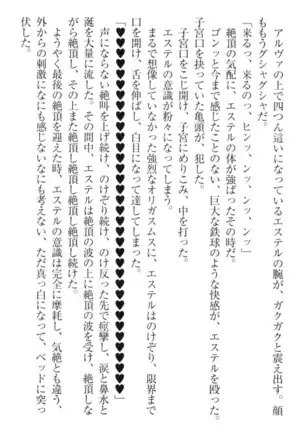 アルヴァの上で四つん這いになっているエステルの腕が、ガクガクと震え出す。顔
ももうグシャグシャだ。
「来るっ、来るのっ、ヒンッ、ンッ、ンッ、ンッ」
絶頂の気配に、エステルの体が強ばったその時だ。
ゴンッと今まで感じたことのない、巨大な鉄球のような快感が、エステルを襲った。
子宮口を抉っていた亀頭が、犯した。
子宮口をこじ開け、子宮にめりこみ、中を打った。
エステルの意識が粉々になってしまう。
まるで想像していなかった強烈なオリガスムスに、エステルはのけぞり、限界まで
口を開け、舌を伸ばし、白目になって達してしまった。
「♥♥♥♥♥♥♥♥♥♥♥♥♥♥♥♥♥♥♥♥♥♥♥♥」
声にならない絶叫を上げ続け、のけぞり続け、のけ反った先で痙攣し、涙と鼻水と
涎を大量に流した。その間中、エステルは絶頂の波の上に絶頂の波を受け、絶頂しな
がら絶頂し、その上また絶頂し絶頂し絶頂し絶頂し続けた。
ようやく最後の絶頂を迎えた時、エステルの意識は完全に摩耗し、気絶とも違う、
外からの刺激になにも感じないなにも考えない、ただ真っ白になって、ベッドに突っ
伏した。